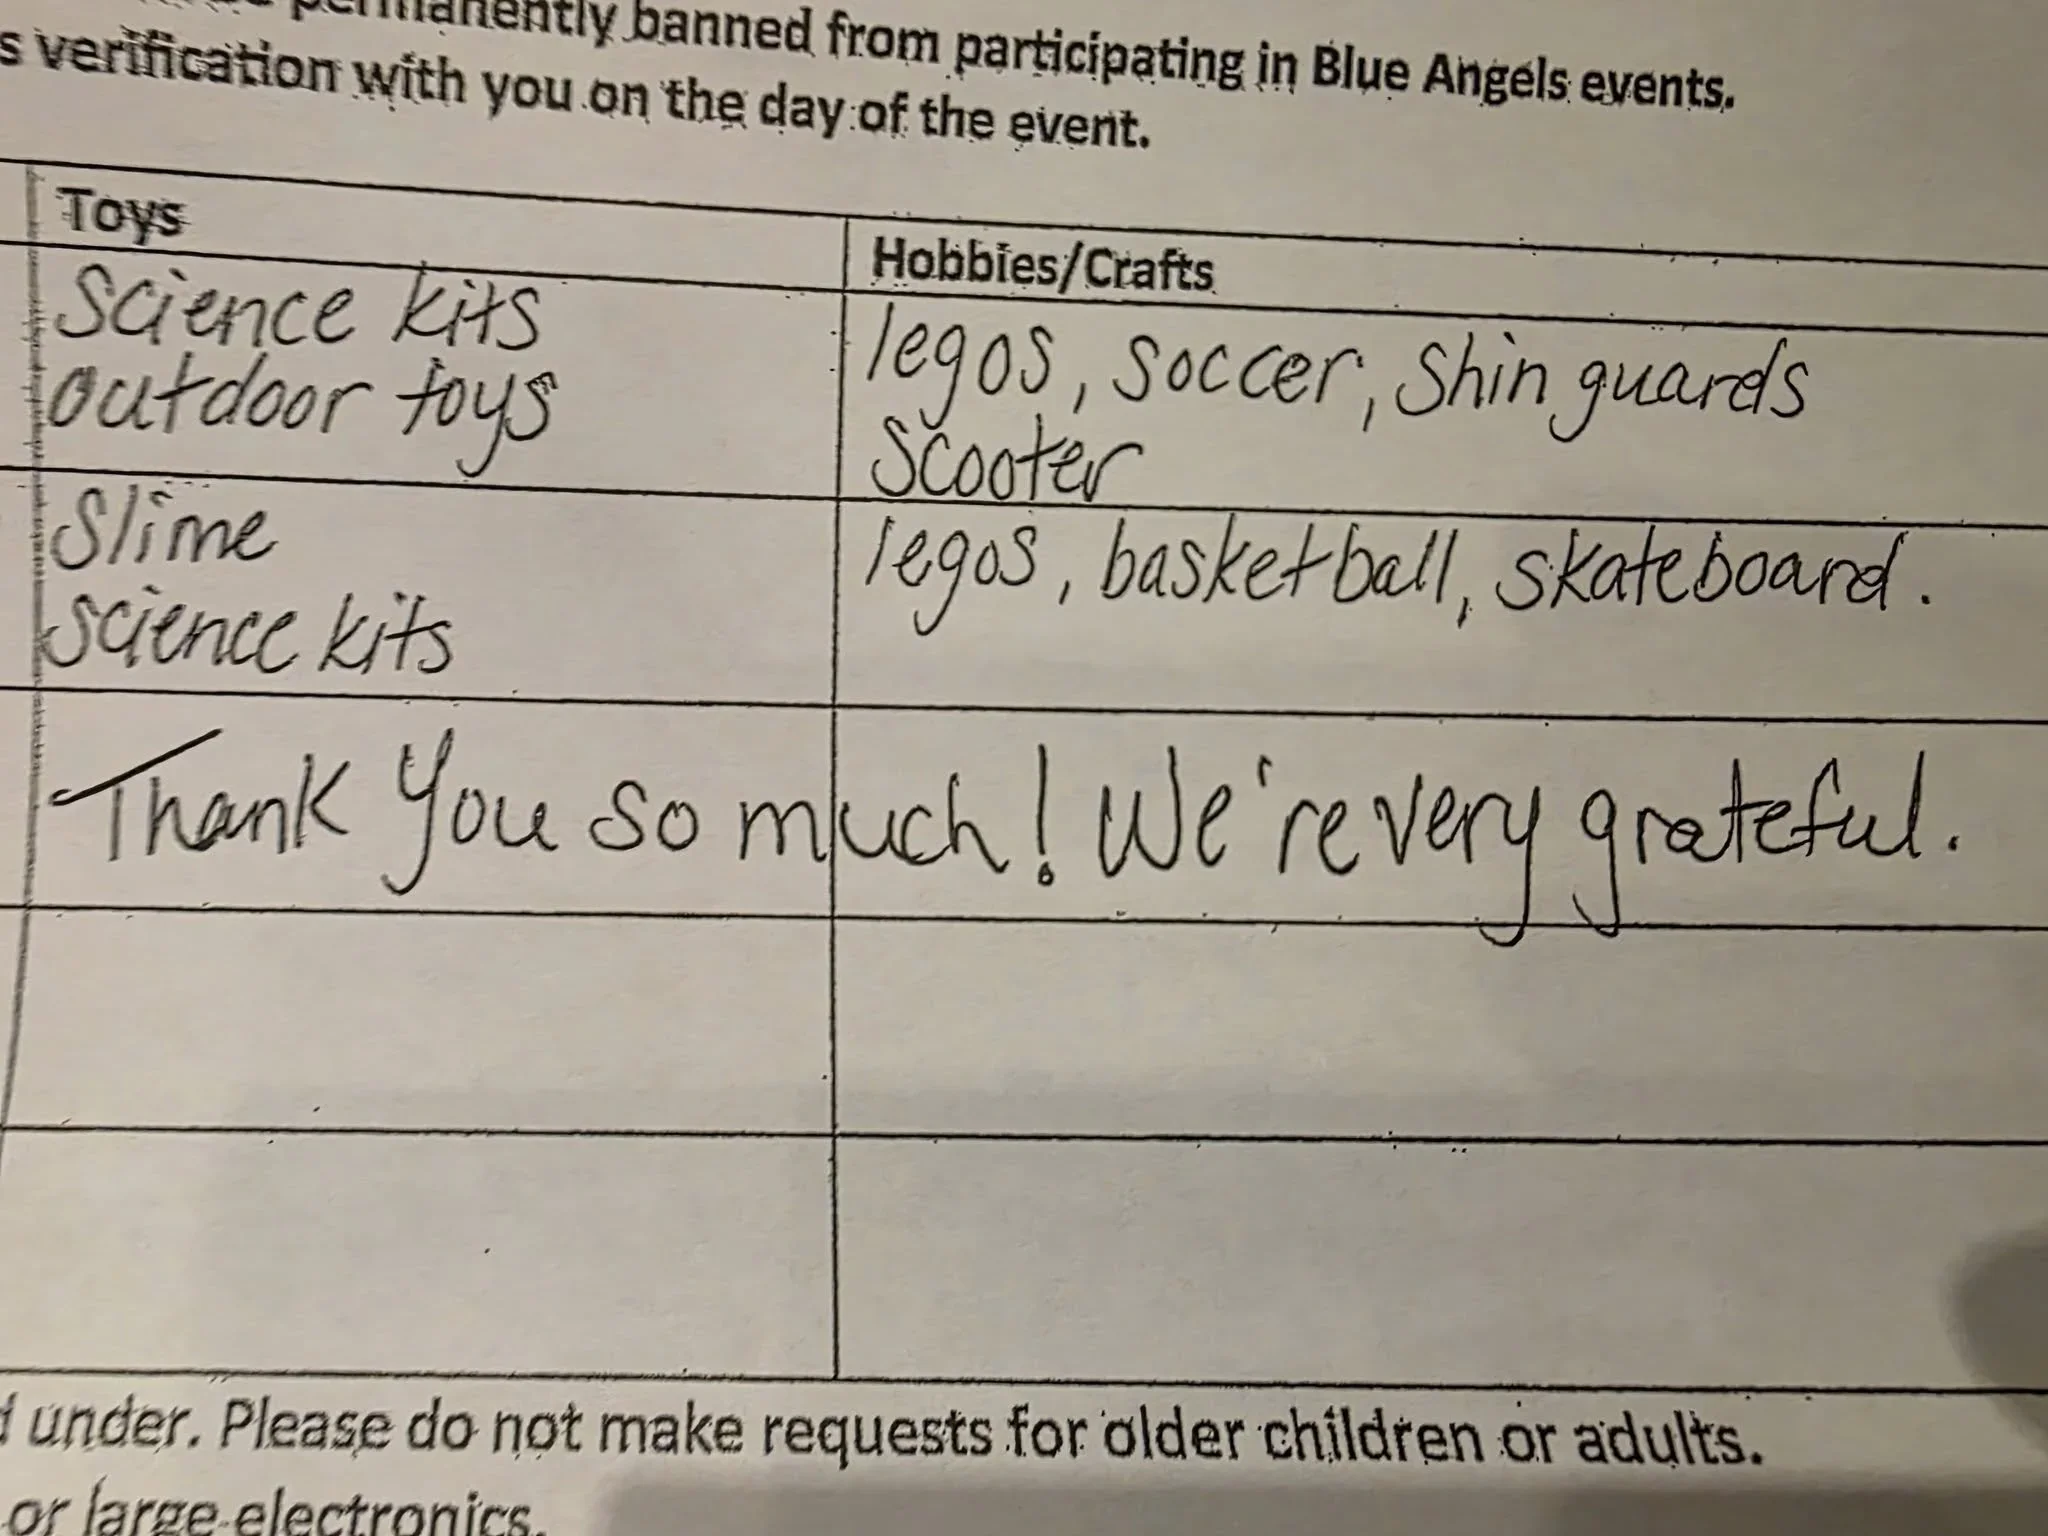 permanently banned from participating in Blue Angels events.
s verification with you on the day of the event.
Toys
Hobbies/Crafts
Science kits
outdoor toys
legos, soccer, Shin guards
Scooter
Slime
science kits
legos, basketball, skateboard.
Thank you so much! We're very grateful.
under. Please do not make requests for older children or adults.
or large electronics.